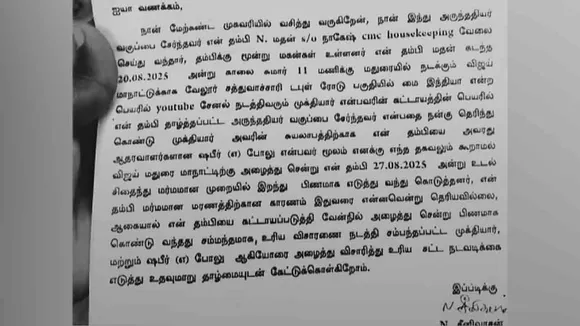 ஐயா வணக்கம்,
நான் மேற்கண்ட முகவரியில் வசித்து வருகிறேன், நான் இந்து அருந்ததியர்
வகுப்பை சேர்ந்தவர் என் தம்பி N. மதன் s/o நாகேஷ் cmc housekeeping வேலை
செய்து வந்தார், தம்பிக்கு மூன்று மகன்கள் உள்ளனர் என் தம்பி மதன் கடந்த
20.08.2025 அன்று காலை சுமார் 11 மணிக்கு மதுரையில் நடக்கும் விஜய்
மாநாட்டுக்காக வேலூர் சத்துவாச்சாரி டபுள் ரோடு பகுதியில் மை இந்தியா என்ற
பெயரில் youtube சேனல் நடத்திவரும் முக்தியார் என்பவரின் கட்டாயத்தின் பெயரில்
என் தம்பி தாழ்த்தப்பட்ட அருந்ததியர் வகுப்பை சேர்ந்தவர் என்பதை நன்கு தெரிந்து
கொண்டு முக்தியார் அவரின் சுயலாபத்திற்காக என் தம்பியை அவரது
ஆதரவாளர்களான ஷபீர் (எ) போலு என்பவர் மூலம் எனக்கு எந்த தகவலும் கூறாமல்
விஜய் மதுரை மாநாட்டிற்கு அழைத்து சென்று என் தம்பி 27.08.2025 அன்று உடல்
சிதைந்து மர்மமான முறையில் இறந்து பிணமாக எடுத்து வந்து கொடுத்தனர், என்
தம்பி மர்மமான மரணத்திற்கான காரணம் இதுவரை என்னவென்று தெரியவில்லை,
ஆகையால் என் தம்பியை கட்டாயப்படுத்தி வேனில் அழைத்து சென்று பிணமாக
கொண்டு வந்தது சம்மந்தமாக, உரிய விசாரணை நடத்தி சம்பந்தப்பட்ட முக்தியார்,
மற்றும் ஷபீர் (எ) போலு ஆகியோரை அழைத்து விசாரித்து உரிய சட்ட நடவடிக்கை
எடுத்து உதவுமாறு தாழ்மையுடன் கேட்டுக்கொள்கிறோம்.
இப்படிக்கு
N. சீனிவாசன்